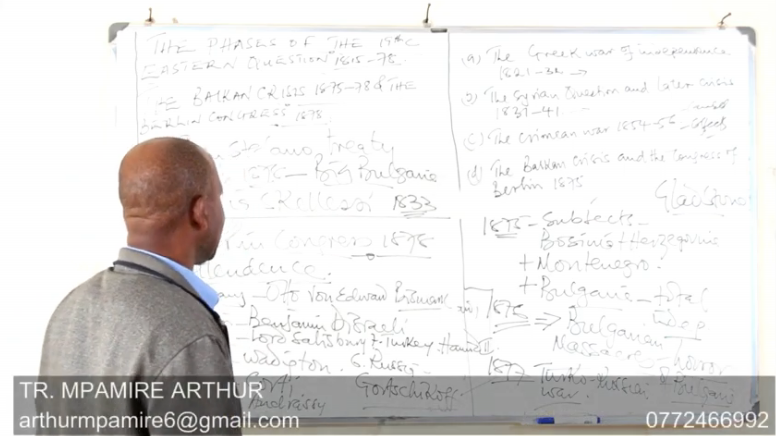 THE PHASES OF THE 19thC
EASTERN QUESTION 1815-78.
THE BALKAN CRISIS 1875-78 & THE
BERLIN CONGRESS 1878
Treaty
1878 - Big Bulgaria
1833
Congress 1878
Oto Von Edward Bismark
Benjamin Disraeli
Lord Salisbury Turkey Hamid II
Russia
Gortschikoff
Andrassy
(a) The Greek war of independence
1821-32
The Syrian Question and Later Crisis
1831-41
(c) The Crimean war 1854-56 - effects
(d) The Balkan crisis and the Congress of
Berlin 1875
Gladstone
1875 - Subjects
Bosinia + Herzegovina
+ Montenegro.
+ Bulgaria - total
1875 Bulgarian indep
Massacres - horror
1877 Turko-Russia & Bulgaria
war.
TR. MPAMIRE ARTHUR
arthurmpamire6@gmail.com
0772466992